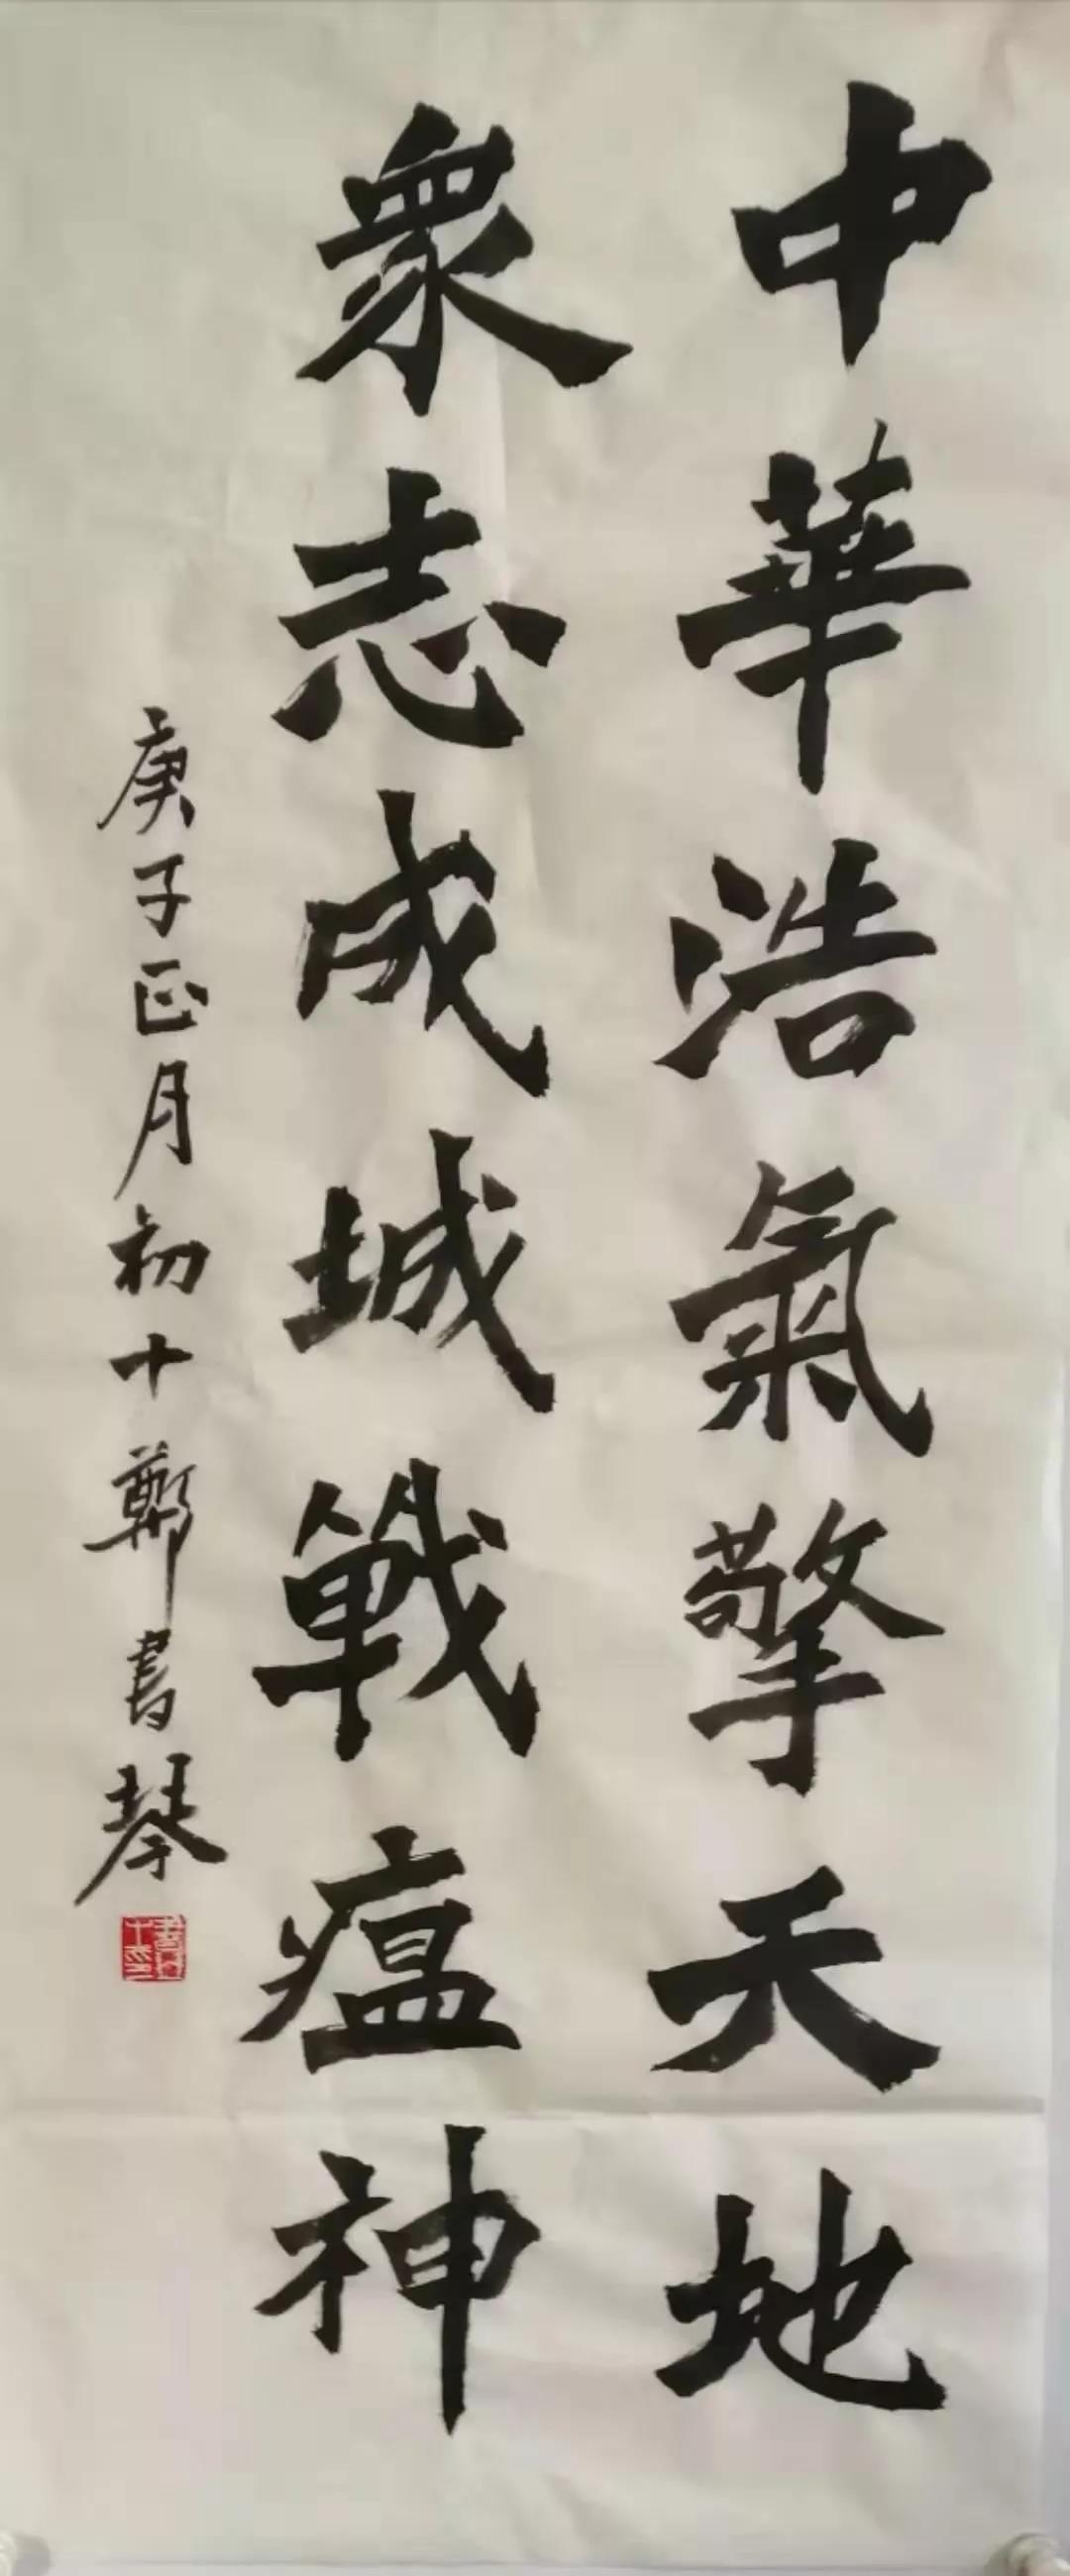 中華浩氣擎天地
衆志成城戰瘟神
庚子正月初十鄭書琴